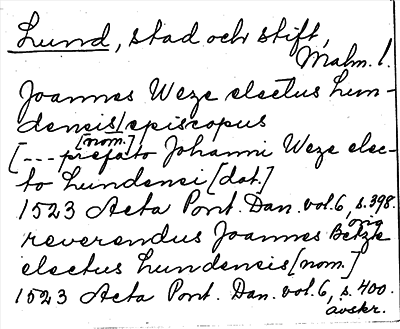 Lund, stad och stift,
Malm. l.
Joannes Weze electus lun-
densis/episcopus
[nom.]
[--- prefato Johanni Weze elec-
to lundensi [dat.]
1523 Acta Pont. Dan. vol. 6, s. 398.
orig
reverendus Joannes Betzke
electus lundensis [nom.]
1523 Acta Pont. Dan. vol. 6, s. 400.
avskr.